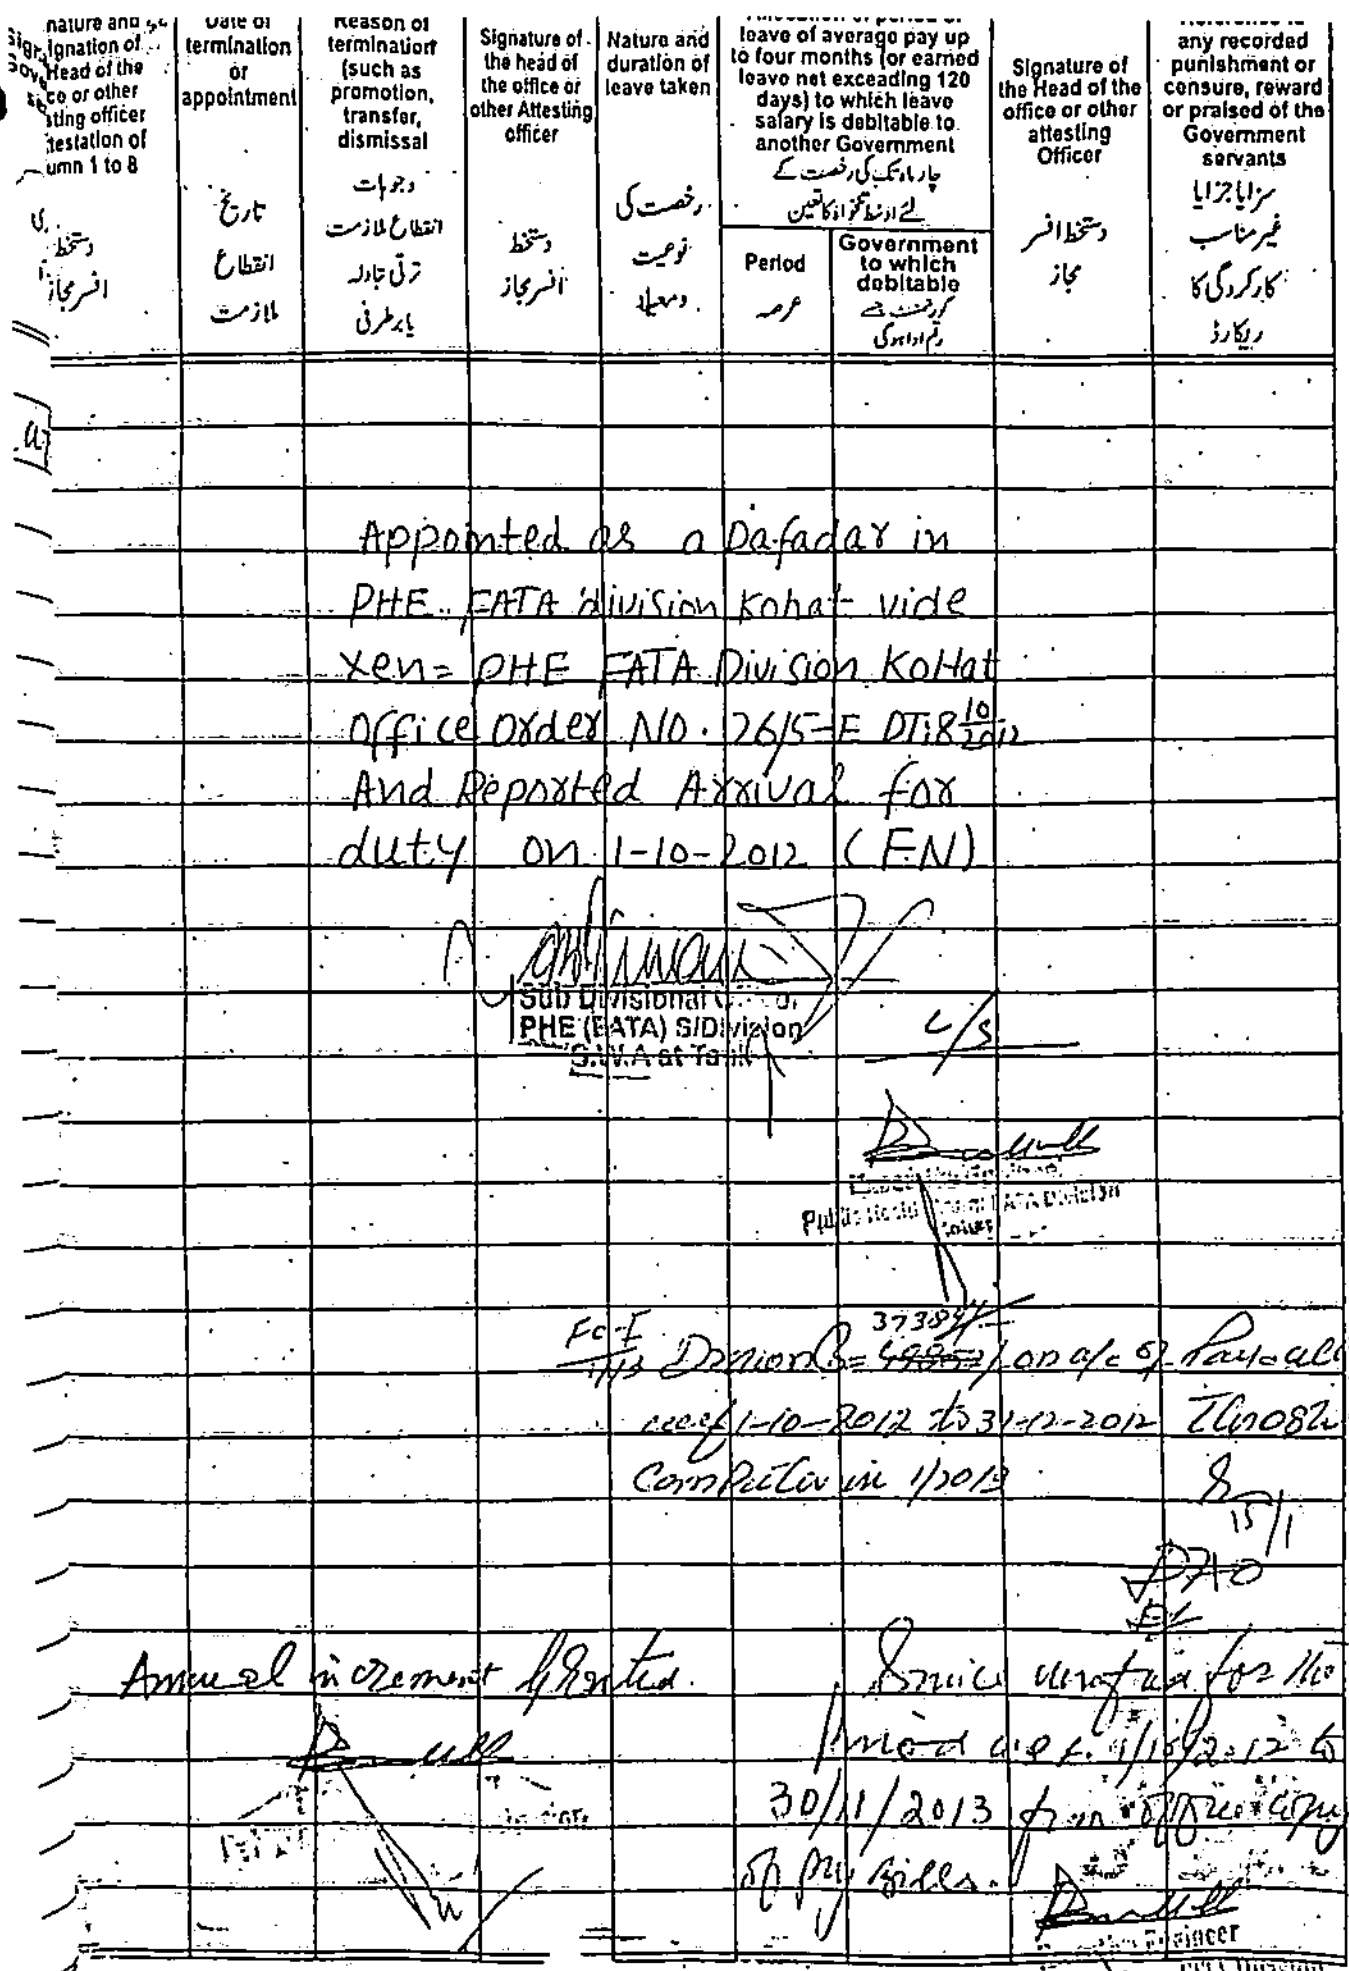 nature and
ignation of
Head of the
ce or other
sting officer
testation of
umn 1 to 8
دستخط
افسر مجاز
Date of
termination
or
appointment
تاریخ
انقطاع
ملازمت
Reason of
termination
(such as
promotion,
transfer,
dismissal
وجوہات
انقطاع ملازمت
ترقی تبادلہ
یا برطرفی
Signature of
the head of
the office or
other Attesting
officer
دستخط
افسر مجاز
Nature and
duration of
leave taken
رخصت کی
نوعیت
ومعیاد
leave of average pay up
to four months (or earned
leave not exceeding 120
days) to which leave
salary is debitable to
another Government
چار ماہ تک کی رخصت کے
لئے اوسط تنخواہ کا تعین
Period
عرصہ
Government
to which
debitable
گورنمنٹ جسے
رقم ادا ہوگی
Signature of
the Head of the
office or other
attesting
Officer
دستخط افسر
مجاز
Reference to
any recorded
punishment or
censure, reward
or praised of the
Government
servants
سزا یا جزا یا
غیر مناسب
کارکردگی کا
ریکارڈ
Appointed as a Dafadar in
PHE FATA division Kohat vide
Xen= PHE FATA Division KoHat
Office Order NO. 26/5-E DT:8 10/2012
And Reported Arrival for
duty on 1-10-2012 (F.N)
Sub Divisional
PHE (FATA) S/Division
S.W.A at Tank
C/S
Division
Fc-I
37384/-
on a/c of
1-10-2012 to 31-12-2012
Computer in 1/2013
15/1
Annual increment Granted.
Service verified for the
Period w.e.f. 1/10/2012 to
30/11/2013 from office copy
of pay bills.
Engineer